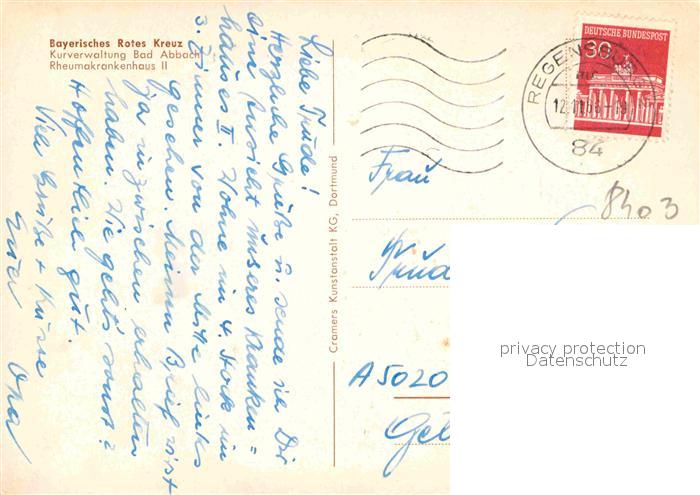 Bayerisches Rotes Kreuz
Kurverwaltung Bad Abbach
Rheumakrankenhaus II
Liebe Trude!
Herzliche Grüße u. sende ich Dir
eine Ansicht unseres Kranken=
hauses II. Wohne im 4. Stock im
3. Zimmer von der Mitte links
gesehen. Meinen Brief wirst
ja inzwischen erhalten
haben. Wie geht's sonst?
Hoffentlich gut.
Viele Grüße + Küsse
Euer Opa
Cramers Kunstanstalt KG, Dortmund
30
DEUTSCHE BUNDESPOST
REGENSBURG
84
8403
Frau
A5020
privacy protection
Datenschutz